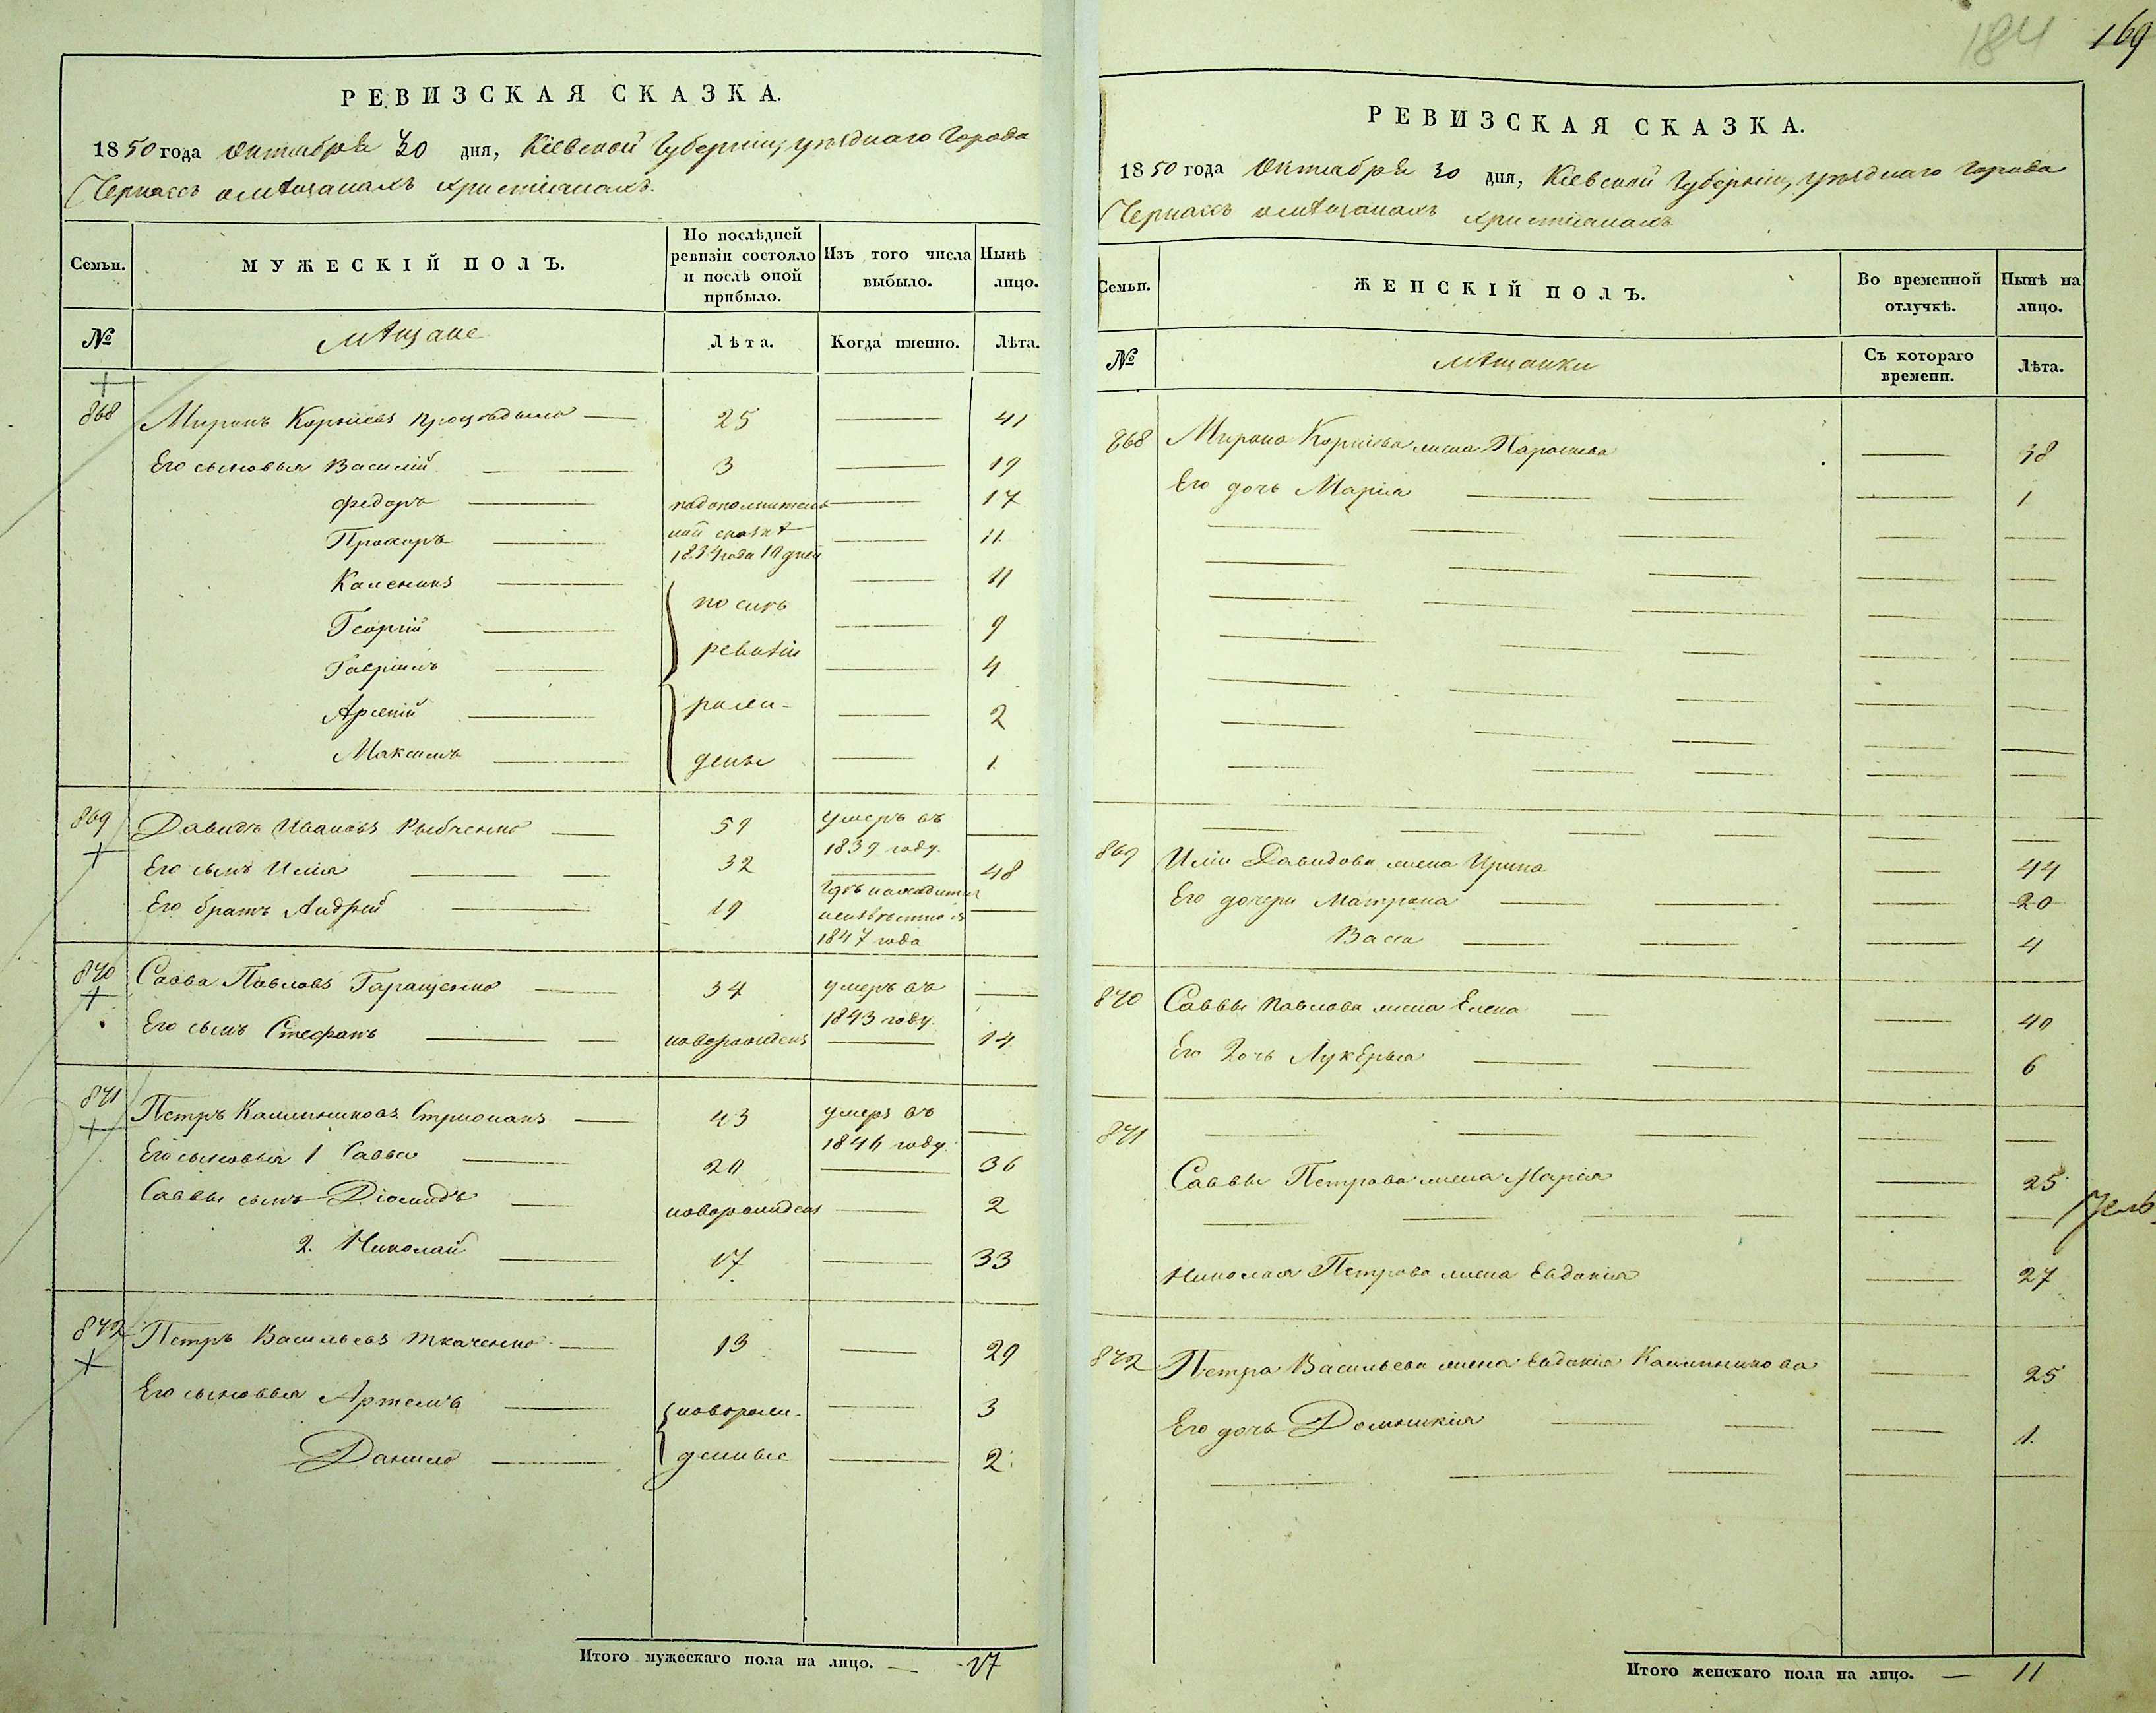 184 169
РЕВИЗСКАЯ СКАЗКА.
1850 года Октября 30 дня, Кіевской Губерніи, уѣзднаго Города
Черкассъ о мѣщанахъ христіанахъ.
Семьи.
МУЖЕСКІЙ ПОЛЪ.
По послѣдней ревизіи состояло и послѣ оной прибыло.
Изъ того числа выбыло.
Нынѣ лицо.
№
Мѣщане
Лѣта.
Когда именно.
Лѣта.
868 Миронъ Корніевъ 25 41
Его сыновья Василій 3 19
Федоръ 17
Прохоръ 11
1834 года 10 дней
Каленикъ 11
Георгій 9
Гавріилъ 4
по сихъ ревизіи
Арсеній 2
Максимъ 1
рожденъ
869 Давидъ Ивановъ Рыбченко 59 умеръ въ 1839 году.
Его сынъ Илія 32 48
Его братъ Андрей 19 Гдѣ находится неизвѣстно съ 1847 года
870 Савва Павловъ Гаращенко 34 умеръ въ 1843 году.
Его сынъ Стефанъ новорожденъ 14
871 Петръ Калинниковъ 43 умеръ въ 1846 году.
Его сыновья 1 Савва 20 36
Саввы сынъ Діомидъ новорожденъ 2
2. Николай 17 33
872 Петръ Васильевъ Ткаченко 13 29
Его сыновья Артемъ 3
Данило 2
новорожденные
Итого мужескаго пола на лицо. — 17
РЕВИЗСКАЯ СКАЗКА.
1850 года Октября 30 дня, Кіевской Губерніи, уѣзднаго Города
Черкассъ о мѣщанахъ христіанахъ
Семьи.
ЖЕНСКІЙ ПОЛЪ.
Во временной отлучкѣ.
Нынѣ на лицо.
№
Мѣщанки
Съ котораго времени.
Лѣта.
868 Мирона Корніева жена Параскева 38
Его дочь Марія 1
869 Иліи Давидова жена Ирина 44
Его дочери Матрона 20
Васса 4
870 Саввы Павлова жена Елена 40
Его дочь Лукерья 6
871
Саввы Петрова жена Марія 25
Николая Петрова жена Евдокія 27
872 Петра Васильева жена Евдокія Калинникова 25
Его дочь Домникія 1.
Итого женскаго пола на лицо. — 11